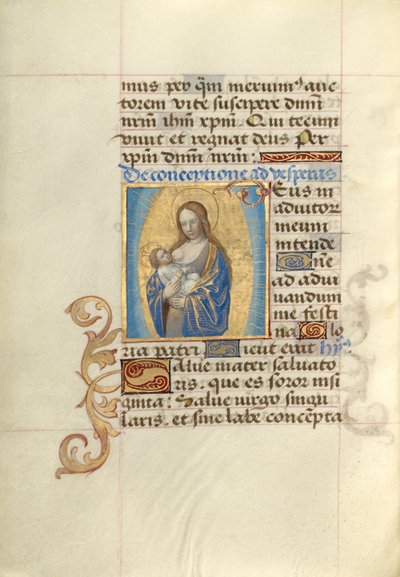 mus per q̃m meruim⁹ auc
torem vite suscipere dñm̃
nrm̃ ihm̃ xp̃m. Qui tecum
viuit et regnat deus Per
xp̃m dñm̃ nrm̃.
De conceptione ad vesperas
Eus in
adiutor
meum
intende
ñe
ad adiu
uandum
me festi
na Glo
ria patri Sicut erat hy̾s
Salue mater saluato
ris. que es soror nisi
ginta: Salue virgo singu
laris. et sine labe concepta